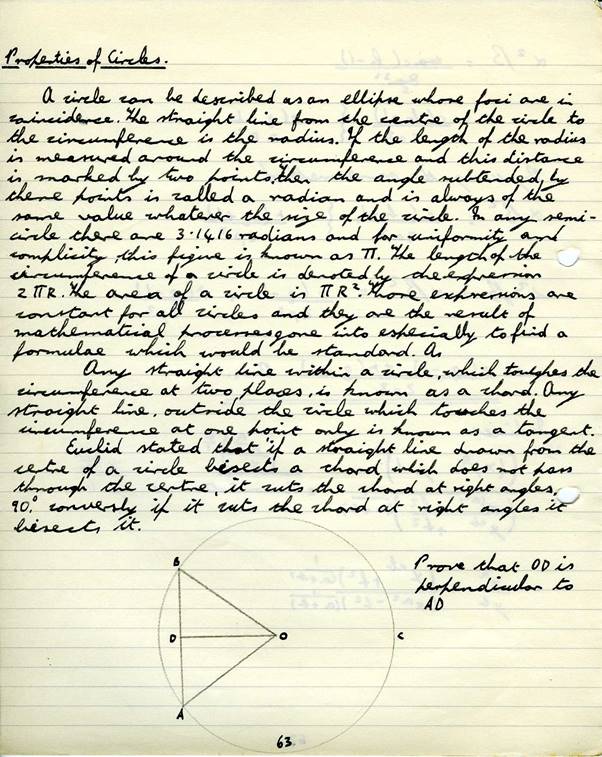 Properties of Circles.
A circle can be described as an ellipse whose foci are in
coincidence. The straight line from the centre of the circle to
the circumference is the radius. If the length of the radius
is measured around the circumference and this distance
is marked by two points, then the angle subtended, by
these points is called a radian and is always of the
same value whatever the size of the circle. In any semi-
circle there are 3·1416 radians and for uniformity and
complicity this figure is known as π. The length of the
circumference of a circle is denoted by the expression
2πR. The area of a circle is πR². These expressions are
constant for all circles and they are the result of
mathematical processes gone into especially to find a
formulae which would be standard. As
Any straight line within a circle, which touches the
circumference at two places, is known as a chord. Any
straight line, outside the circle which touches the
circumference at one point only is known as a tangent.
Euclid stated that if a straight line drawn from the
cetre of a circle bisects a chord which does not pass
through the centre, it cuts the chord at right angles,
90°. conversly if it cuts the chord at right angles it
bisects it.
B
Prove that OD is
perpendicular to
AD
D O C
A
63.